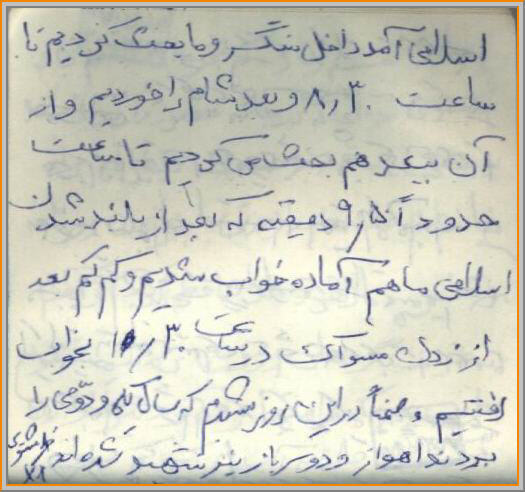 اسلامی آمد داخل سنگر و ما بحث کردیم تا
ساعت ۸٫۳۰ و بعد شام را خوردیم و از
آن ببعد هم بحث می کردیم تا ساعت
حدوداً ۹٫۵ دقیقه که بعد از بلند شدن
اسلامی ما هم آماده خواب شدیم و کم کم بعد
از زدن مسواک در ساعت ۱۰٫۳۰ بخواب
رفتیم و ضمناً در این روز شنیدم که و دومی را
بردند اهواز و دو سرباز نیز شهید شده اند